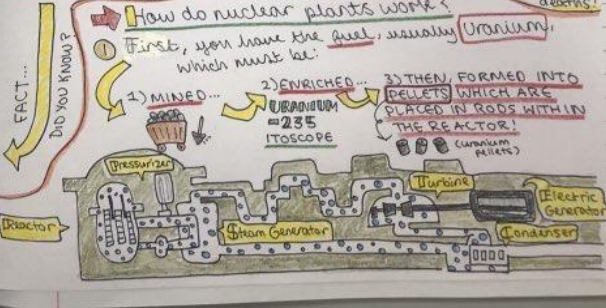 deaths!
How do nuclear plants work?
① First, you have the fuel, usually Uranium,
which must be:
FACT...
DID YOU KNOW?
1) MINED...
2) ENRICHED...
URANIUM
-235
ITOSCOPE
3) THEN, FORMED INTO
PELLETS WHICH ARE
PLACED IN RODS WITHIN
THE REACTOR!
(uranium
pellets)
Pressurizer
Reactor
Steam Generator
Turbine
Electric
Generator
Condenser